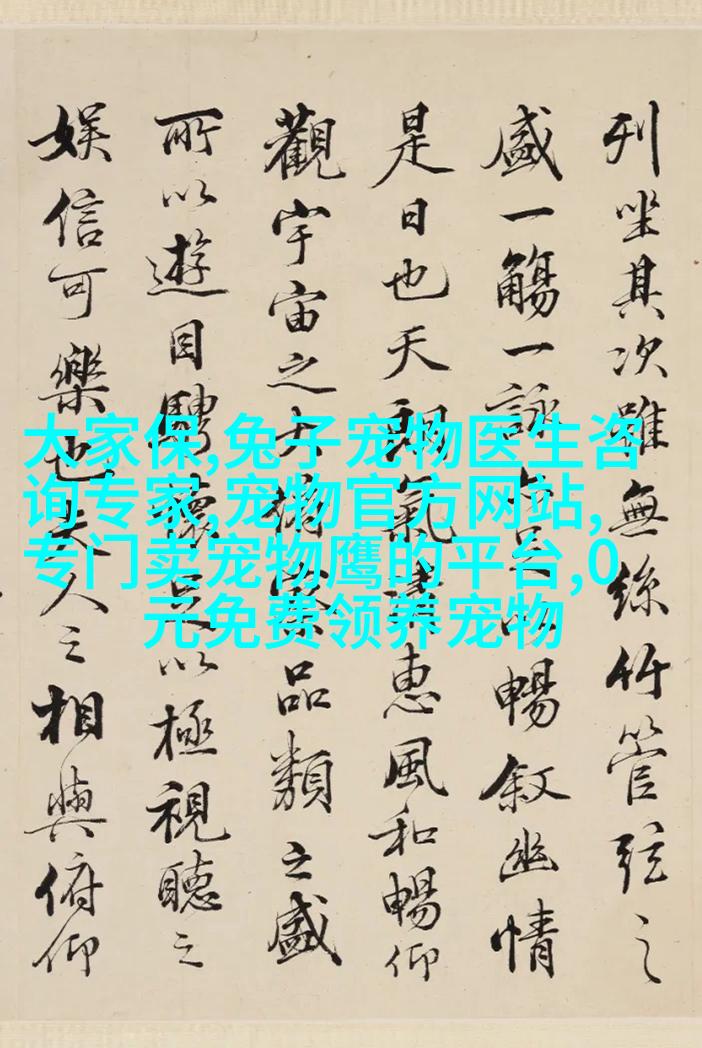 列坐其次雖無絲竹管弦之
盛一觴一詠亦足以暢敘幽情
是日也天朗氣清惠風和暢仰
觀宇宙之大俯察品類之盛
所以遊目騁懷足以極視聽之
娛信可樂也夫人之相與俯仰
大家保,兔子宠物医生咨
询专家,宠物官方网站,
专门卖宠物鹰的平台,0
元免费领养宠物